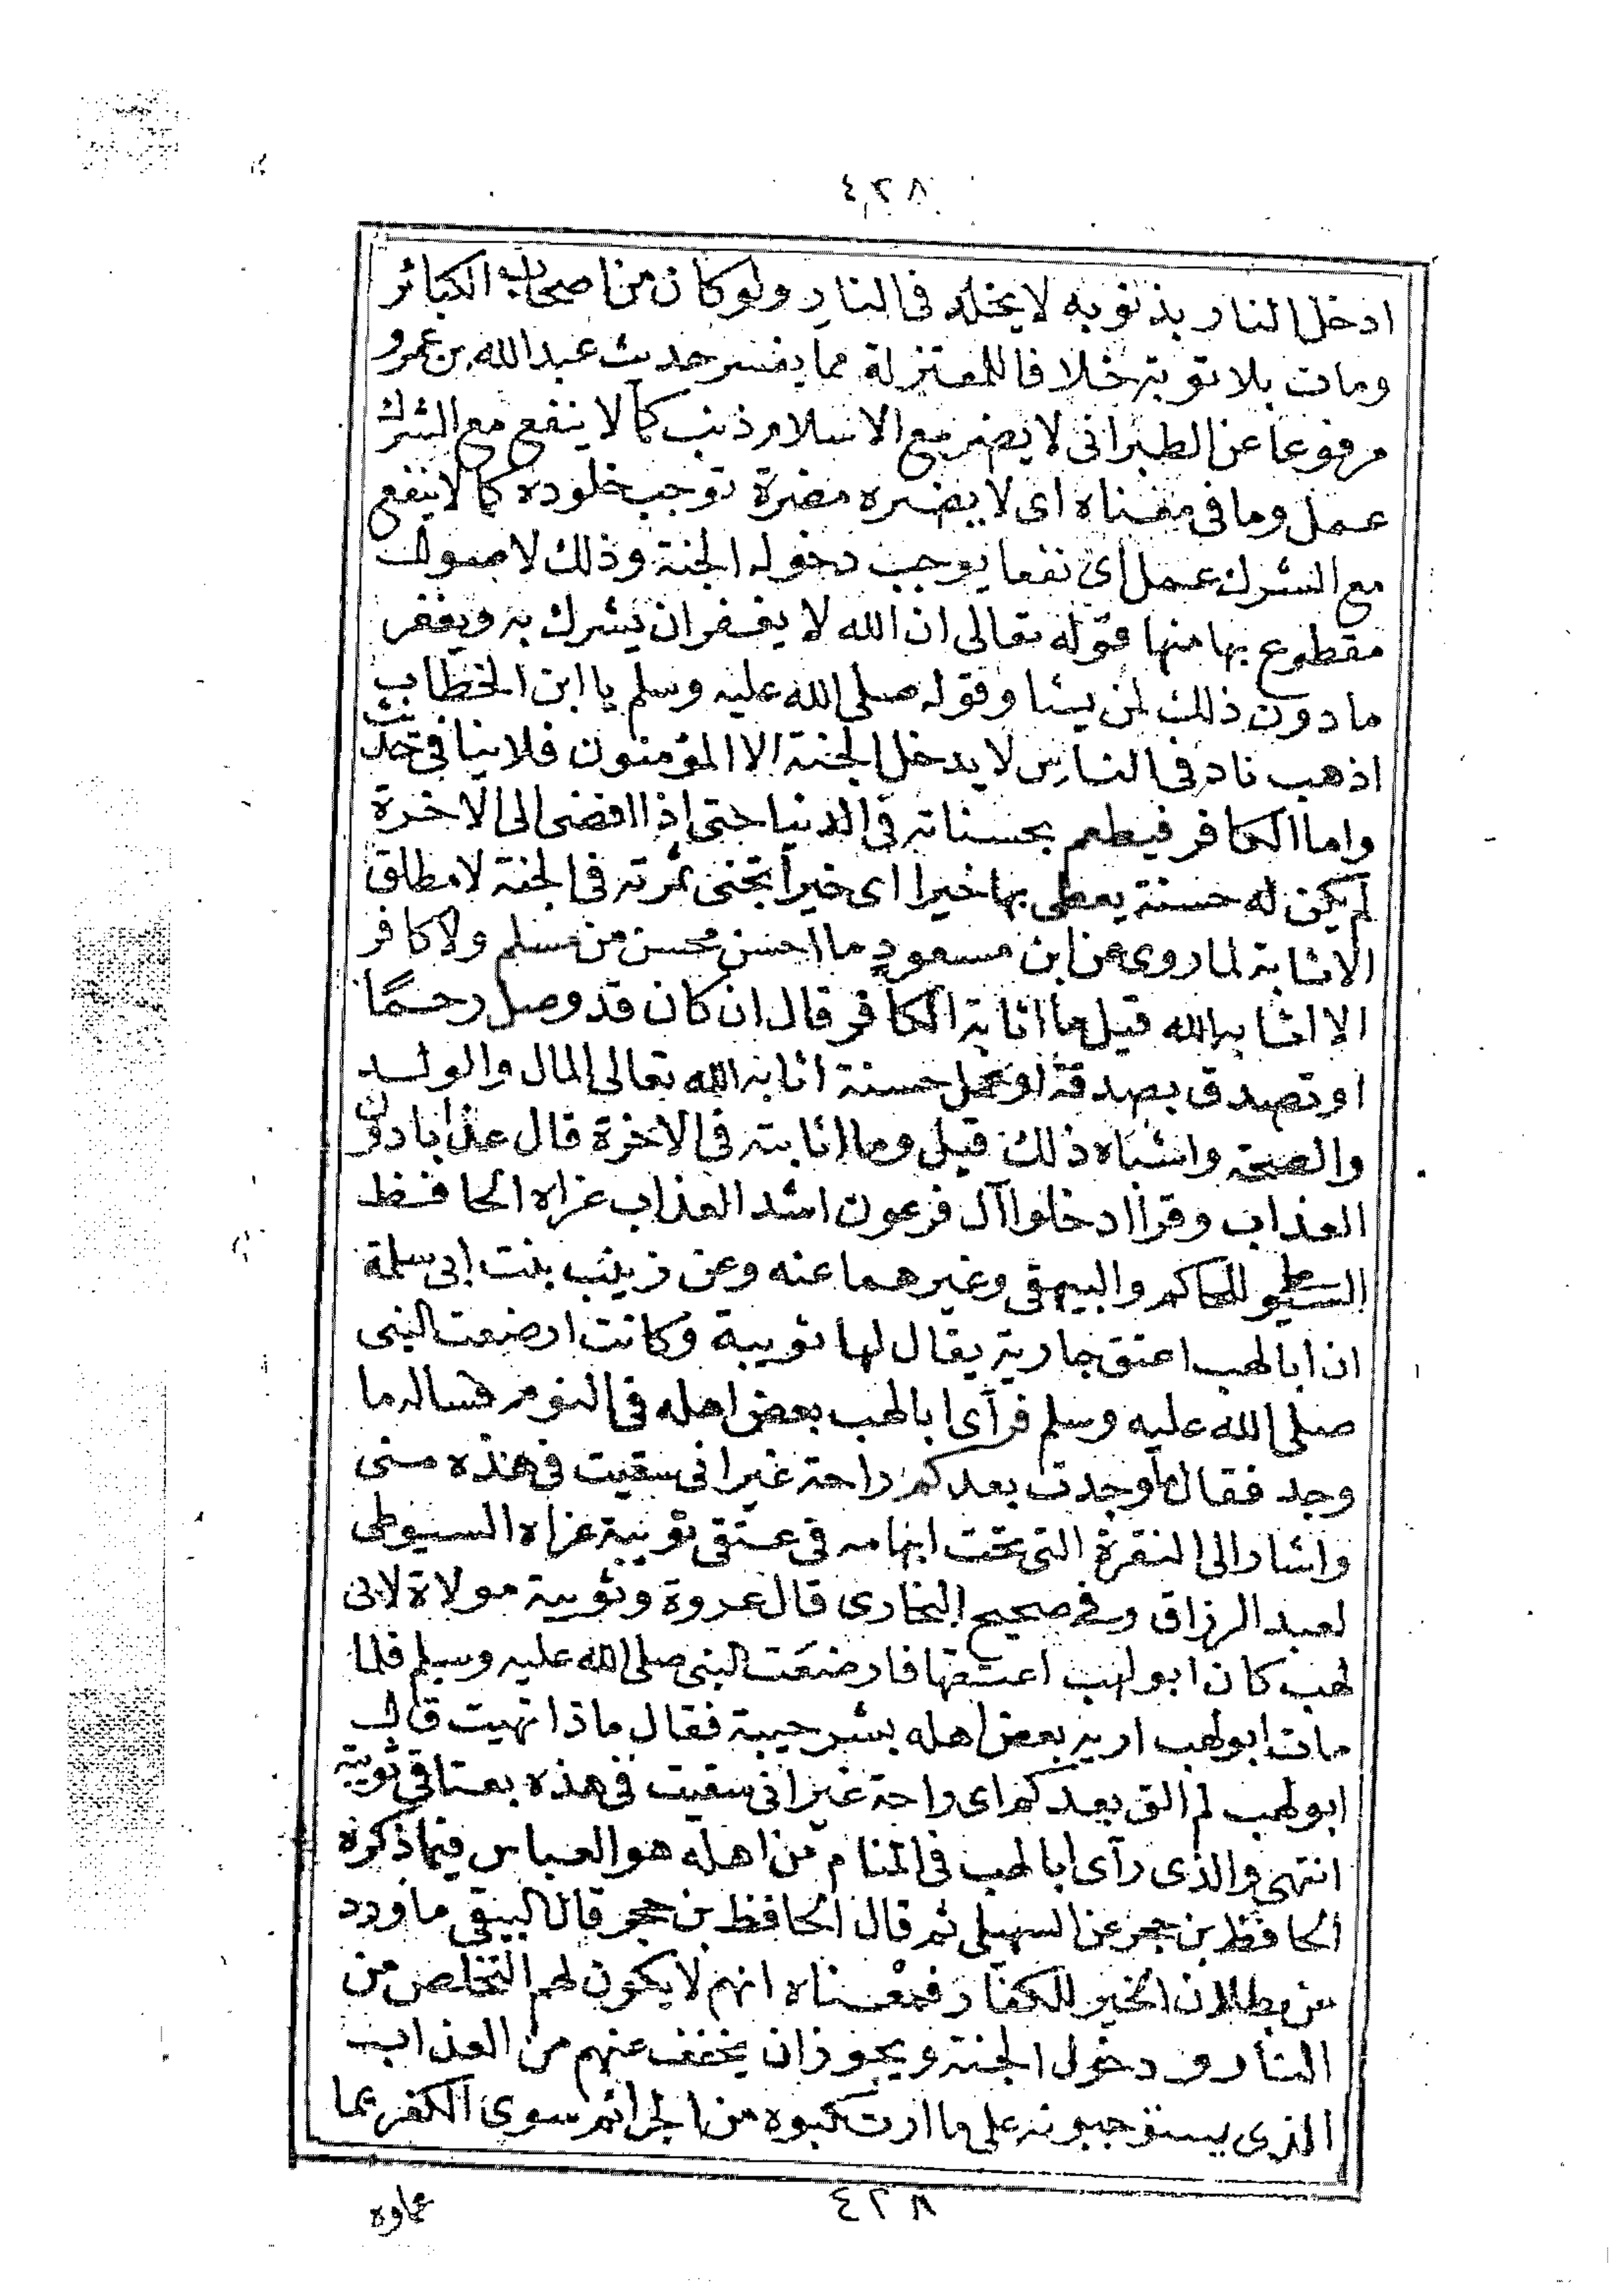 ٤٢٨
ادخل النار بذنوبه لا يخلد في النار ولو كان من اصحاب الكبائر
ومات بلا توبة خلافا للمعتزلة مما يفسر حديث عبد الله بن عمرو
مرفوعا عن الطبراني لا يضر مع الاسلام ذنب كما لا ينفع مع الشرك
عمل وما في معناه اى لا يضره مضرة توجب خلوده كما لا ينفع
مع الشرك عمل اى نفعا يوجب دخوله الجنة وذلك لاصول
مقطوع بها منها قوله تعالى ان الله لا يغفر ان يشرك به ويغفر
ما دون ذلك لمن يشا وقوله صلى الله عليه وسلم يا ابن الخطاب
اذهب ناد في الناس لا يدخل الجنة الا المؤمنون فلا ينافي حديث
واما الكافر فيطعم بحسناته في الدنيا حتى اذا افضى الى الاخرة
لم يكن له حسنة يعطى بها خيرا اى خيرا يجنى ثمرته في الجنة لا مطلق
الاثابة لما روى عن ابن مسعود ما احسن محسن من مسلم ولا كافر
الا اثابه الله قيل ما اثابة الكافر قال ان كان قد وصل رحمًا
او تصدق بصدقة او عمل حسنة اثابه الله تعالى المال والولد
والصحة واشباه ذلك قيل وما اثابته في الاخرة قال عذابا دون
العذاب وقرا ادخلوا آل فرعون اشد العذاب عزاه الحافظ
السيوطى للحاكم والبيهقى وغيرهما عنه وعن زينب بنت ابى سلمة
ان ابا لهب اعتق جارية يقال لها ثويبة وكانت ارضعت النبى
صلى الله عليه وسلم فرآى ابا لهب بعض اهله في النوم فساله ما
وجد فقال ما وجدت بعدكم راحة غير انى سقيت في هذه منى
واشار الى النقرة التى تحت ابهامه في عتقى ثويبة عزاه السيوطى
لعبد الرزاق وفي صحيح البخارى قال عروة وثويبة مولاة لابى
لهب كان ابو لهب اعتقها فارضعت النبى صلى الله عليه وسلم فلما
مات ابو لهب اريه بعض اهله بشر حيبة فقال ماذا لقيت قال
ابو لهب لم الق بعدكم اى راحة غير انى سقيت في هذه بعتاقى ثويبة
انتهى والذى رآى ابا لهب في المنام من اهله هو العباس فيما ذكره
الحافظ بن حجر عن السهيلى ثم قال الحافظ بن حجر قال البيهقى ما ورد
من بطلان الخير للكفار فمعناه انهم لا يكون لهم التخلص من
النار ودخول الجنة ويجوز ان يخفف عنهم من العذاب
الذى يستوجبونه على ما ارتكبوه من الجرائم سوى الكفر بما
٤٢٨
عملوه